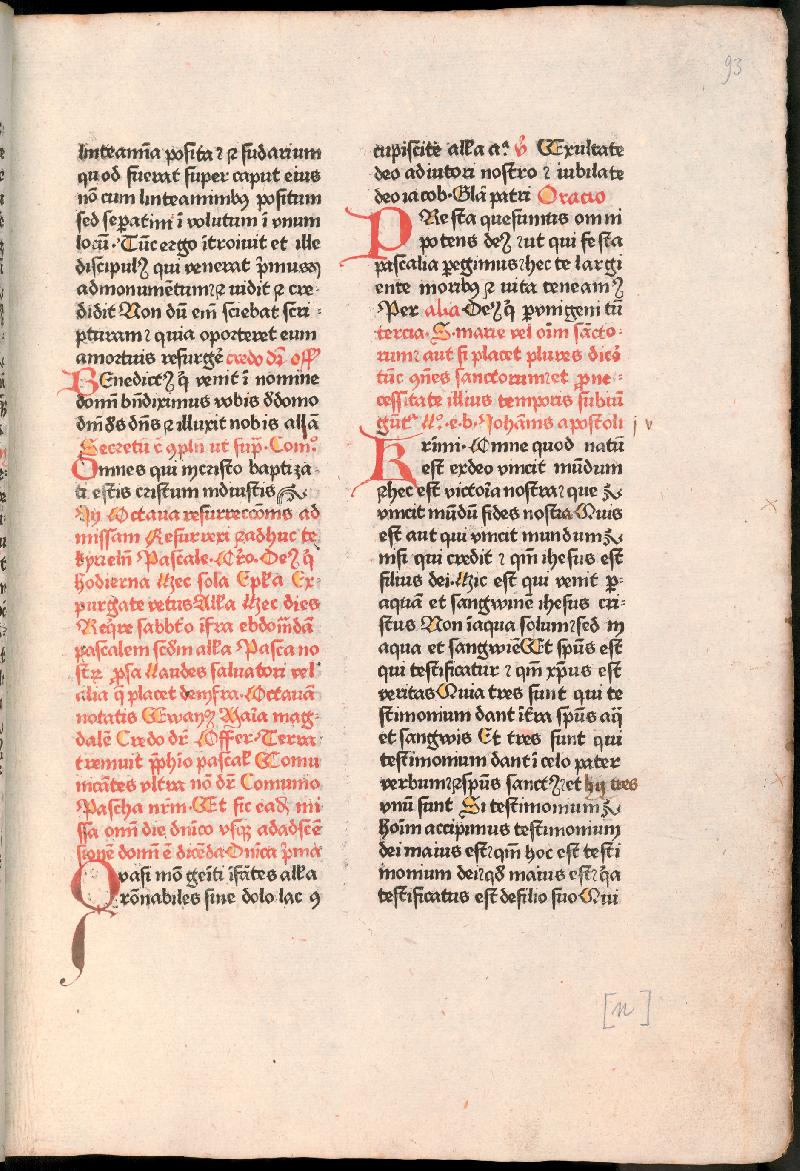 93
linteamīa posita ⁊ ꝛ sudarium
quod fuerat super caput eius
nō cum linteaminibꝰ positum
sed sepatim ī volutum ī vnum
locū· Tūc ergo ītroiuit et ille
discipulꝰ qui venerat p̄mus
ad monumentum ⁊ vidit ꝛ cre-
didit Non dū em̄ sciebat scri-
pturam ⁊ quia oporteret eum
a mortuis resurgē credo dr̄ off
BEnedictꝰ q̄ venit ī nomine
domī bn̄diximus vobis ꝺ domo
dm̄ ꝺs dn̄s ꝛ illuxit nobis all'a
Secretū ē ꝯpln ut sup̄· Com̄o
Omnes qui in cristo baptiza-
ti estis cristum induistis
In Octaua resurreccōnis ad
missam Resurrexi ꝛ adhuc te
kyriel'n Pascale· Cro· Deꝰ q̄
hodierna Hec sola Ep'l'a Ex-
purgate vetus All'a Hec dies
Req̄re sabb'to īfra ebdom̄dā
pascalem scd'm all'a Pasca no
str̄ ꝓsa Laudes saluatori vel
alia q̄ placet de infra· Octauā
notatis Ewang Maīa mag-
dalē Credo dr̄ Offer· Terra
tremuit p̄phio pascal' Comu
nicātes vltra nō dr̄ Comunio
Pascha nrm· Et sic ead' mi
ssa omī die dn̄ico vsqꝫ ad adscē
sionē domī ē dicēda Dn̄ica p̄ma
QVasi mō geīti īfātes all'a
rōnabiles sine dolo lac ꝯ
cupiscite all'a aͣ ꝟ Exultate
deo adiutori nostro ⁊ iubilate
deo iacob· Gl'a patri Oracio
PResta quesumus omni
potens deꝰ ⁊ ut qui festa
pascalia pegimus ⁊ hec te largi
ente moribꝰ ꝛ vita teneamꝰ
Per alia· Deꝰ q̄ p vnigenitū
tercia· S· marie vel oīm sāncto-
rum ⁊ aut si placet plures dices
tūc ꝯn̄es sanctorum ⁊ et p ne-
cessitate illius temporis subiū
gūtͬ Lc̄· e· b· Johānis apostoli
Krīmi· Omne quod natū
est ex deo vincit mūdum
ꝛ hec est victoīa nostra ⁊ que
vincit mūdū fides nostra Quis
est aut qui vincit mundum
nisi qui credit ⁊ qm̄ ihesus est
filius dei· Hic est qui venit p-
aquā et sangwinē ihesus cri-
stus Non ī aqua solum ⁊ sed in
aqua et sangwiē Et spūs est
qui testificatur ⁊ qm̄ xp̄us est
veritas Quia tres sunt qui te
stimonium dant ī t'ra spūs aq̄
et sangwis Et tres sunt qui
testimonium dant ī celo pater
verbum ⁊ ꝛ spūs sanctꝰ ⁊ et hij tres
vnū sunt Si testimonium
hoīm accipimus testimonium
dei maius est ⁊ qm̄ hoc est testi
monium dei ⁊ qꝺ maius est ⁊ q̄a
testificatus est de filio suo Qui
[n]